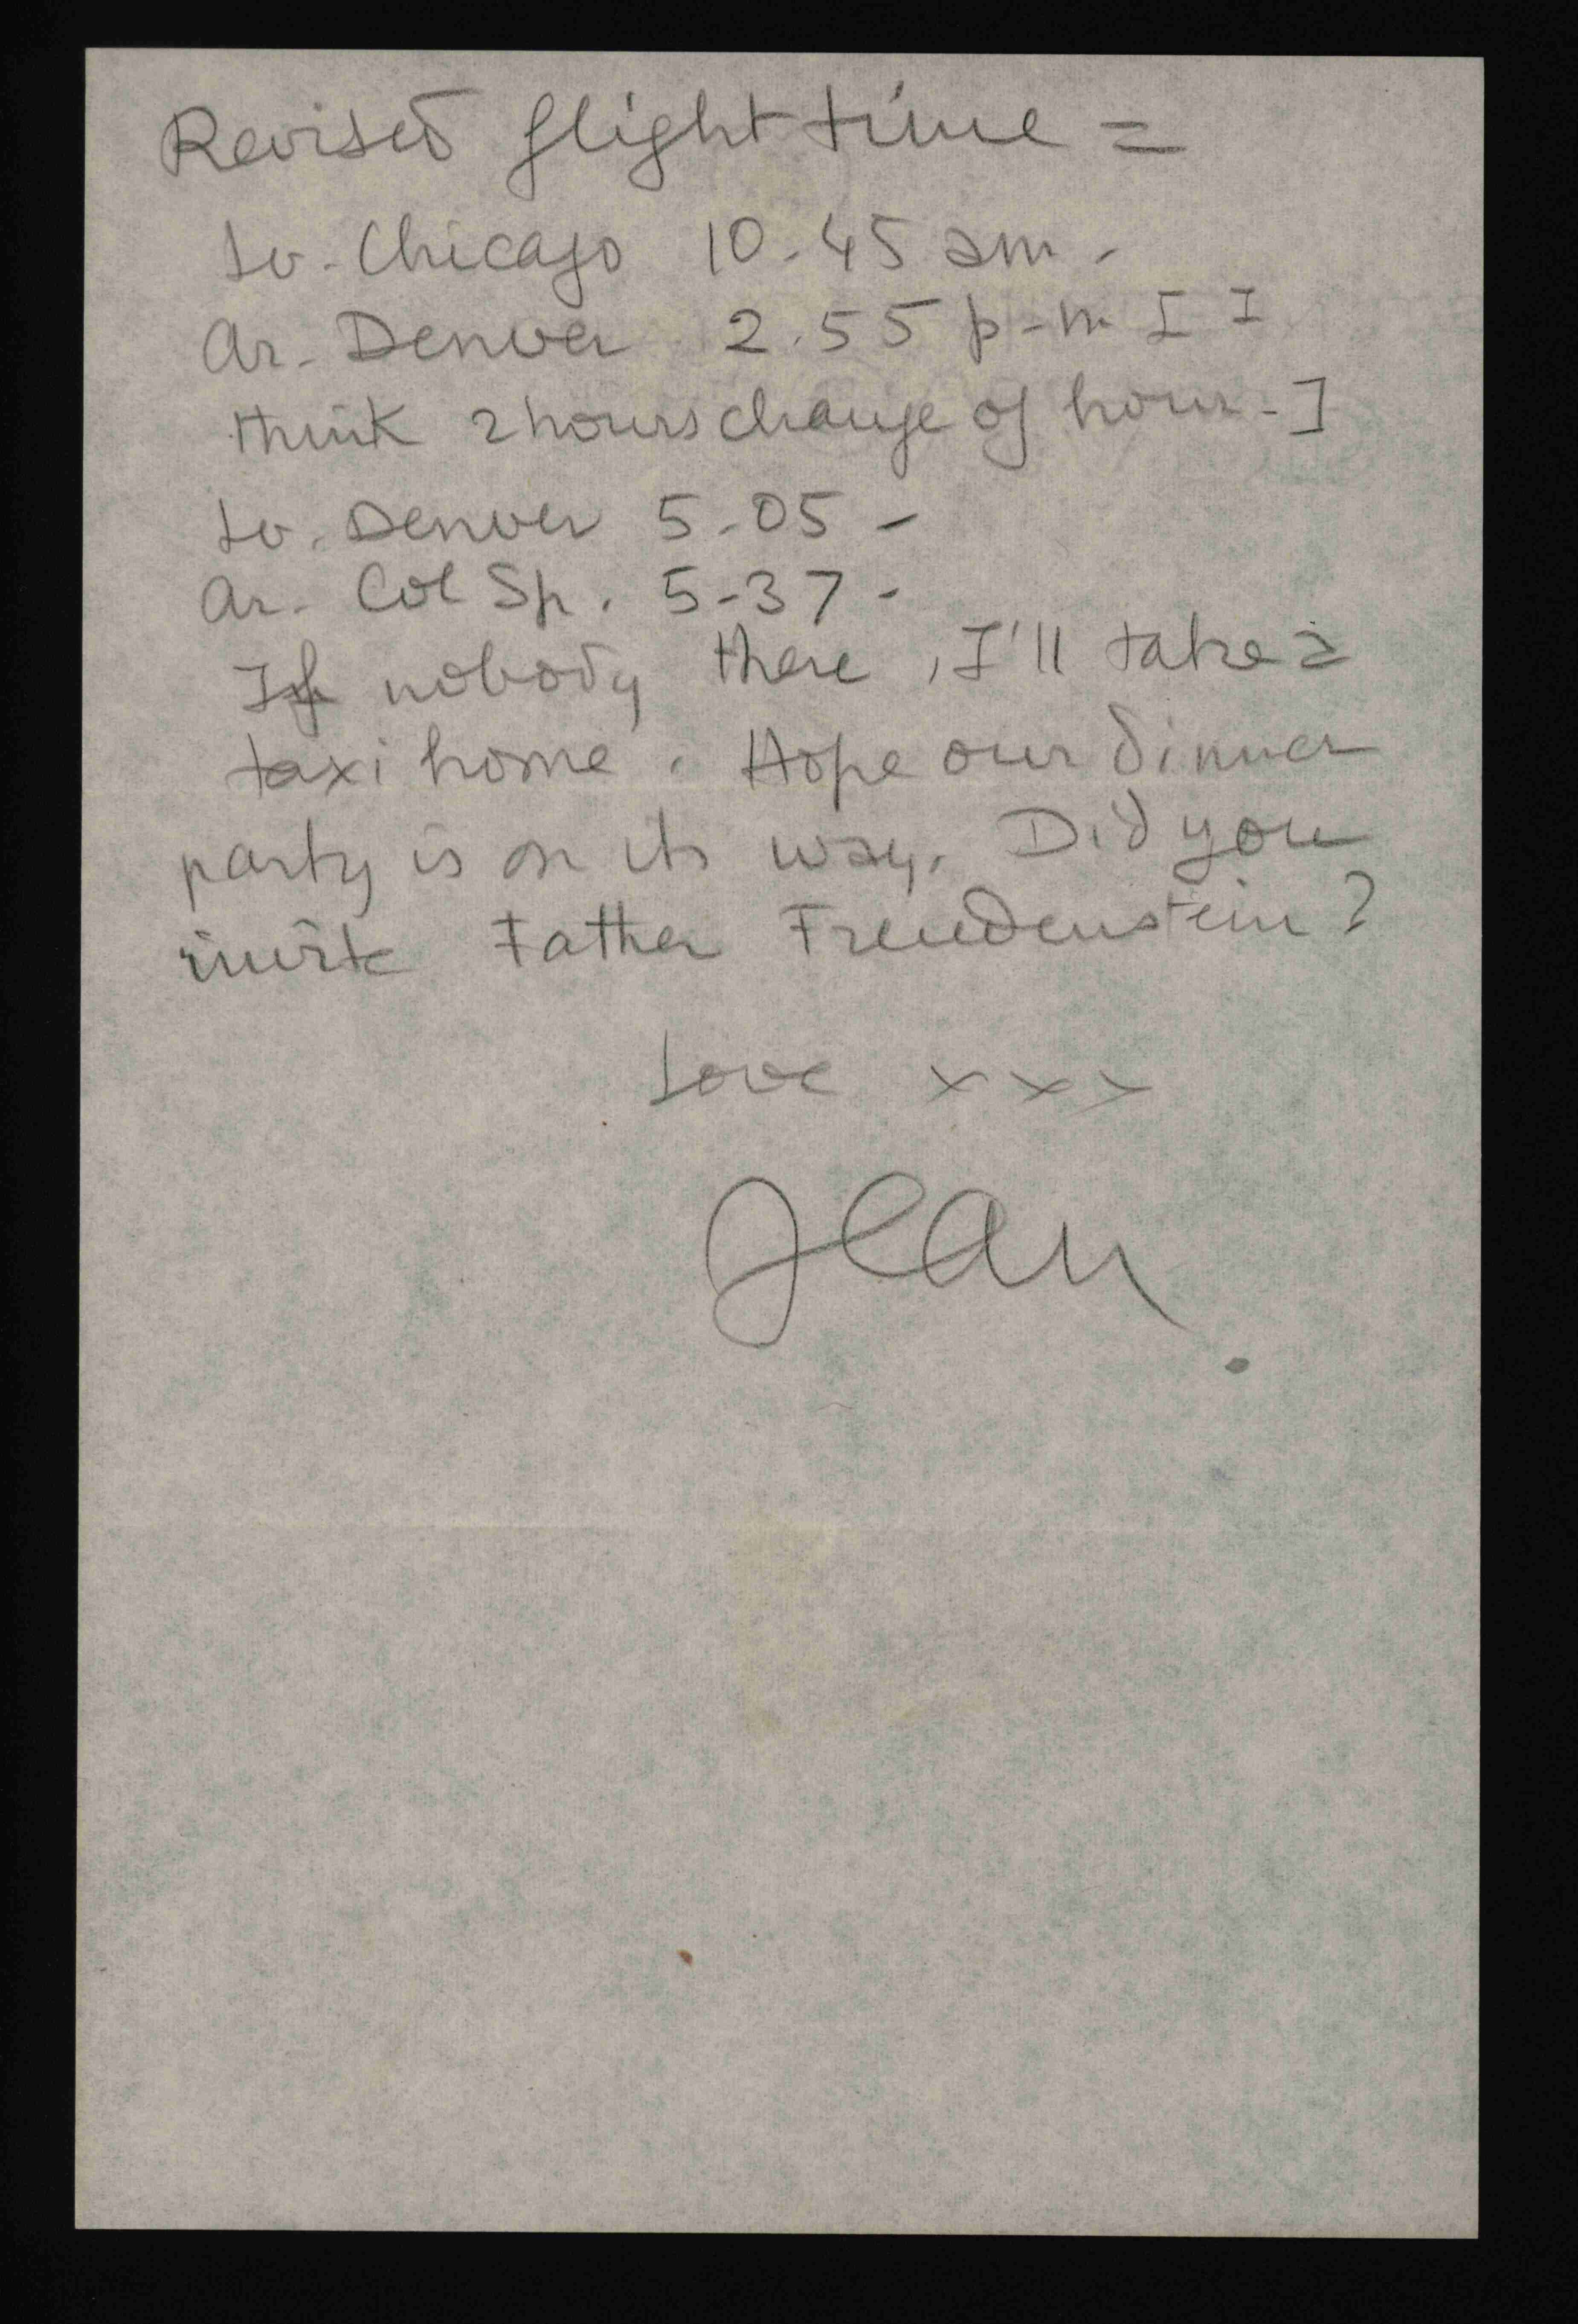 Revised flight time =
Lv. Chicago 10.45 am.
Ar. Denver 2.55 p-m [I
think 2 hours change of hour-]
Lv. Denver 5.05 -
Ar. Col Sp. 5-37-
If nobody there, I'll take a
taxi home. Hope our dinner
party is on its way. Did you
invite Father Freudenstein?
Love xxx
Jean.